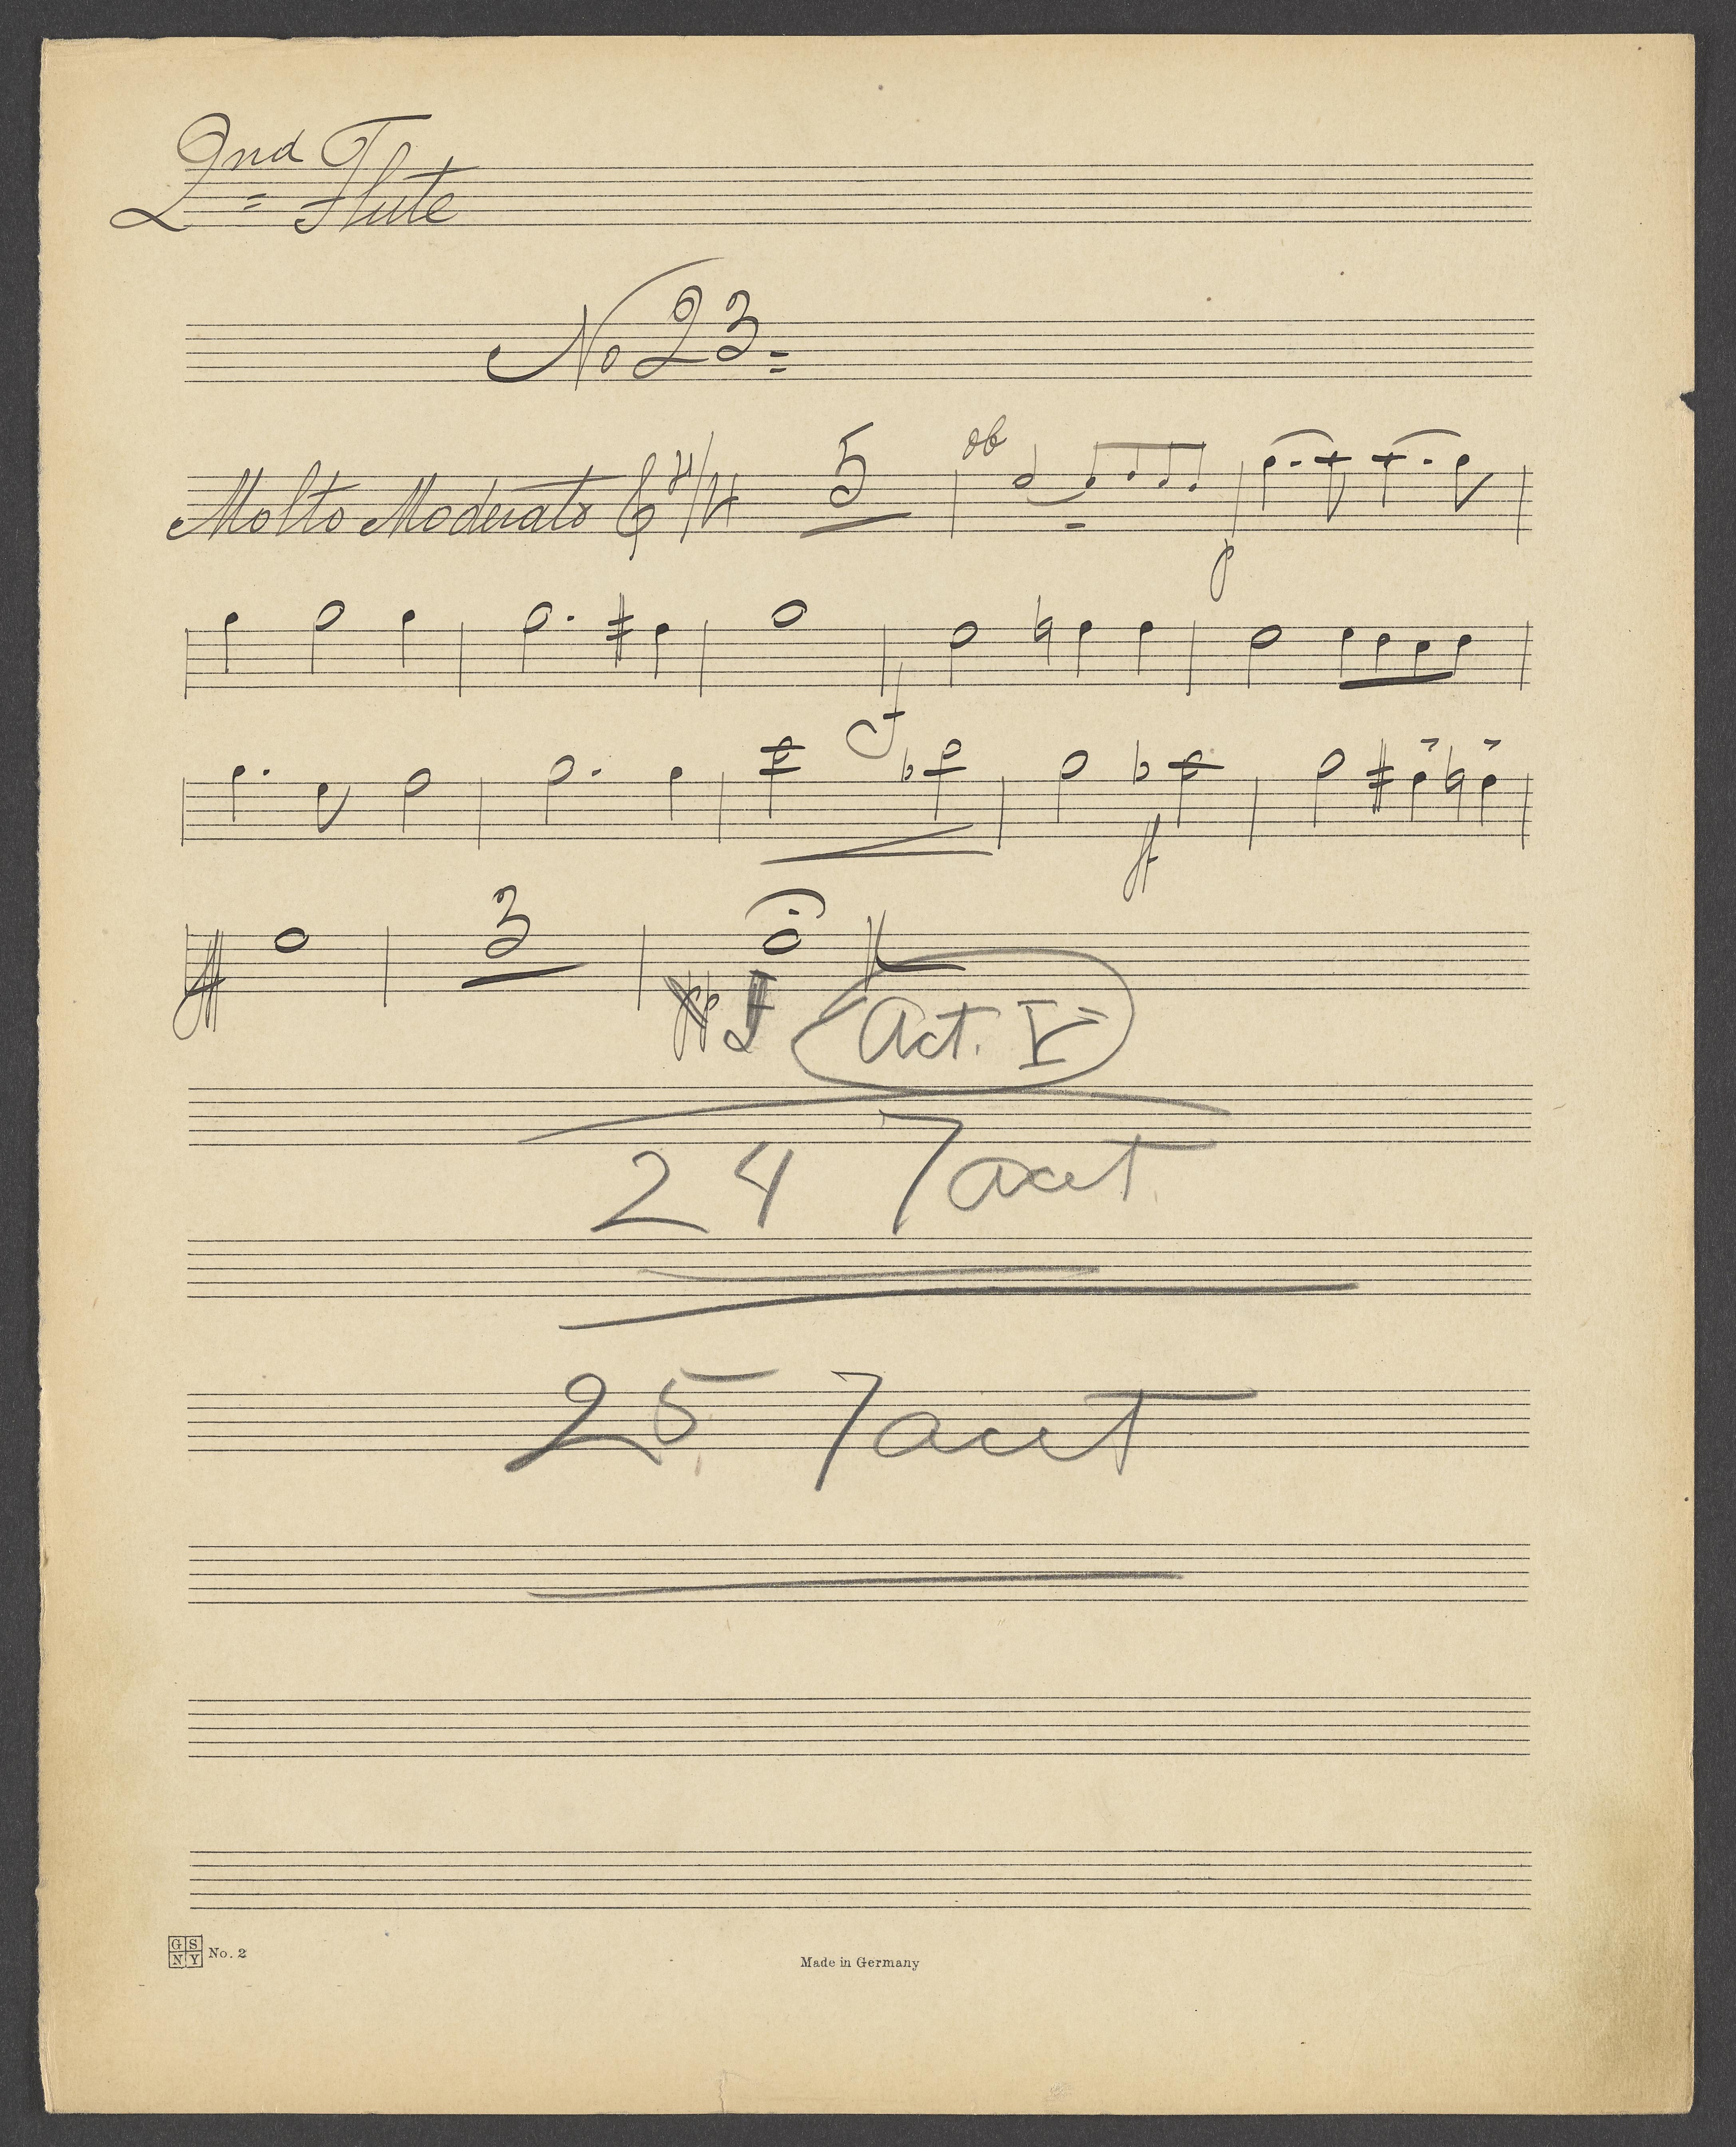 2nd Flute
No 23
Molto Moderato 4/4 5 ob
p
f
ff
fff 3
Act. V
24 Tacet
25 Tacet
GS
NY No. 2
Made in Germany